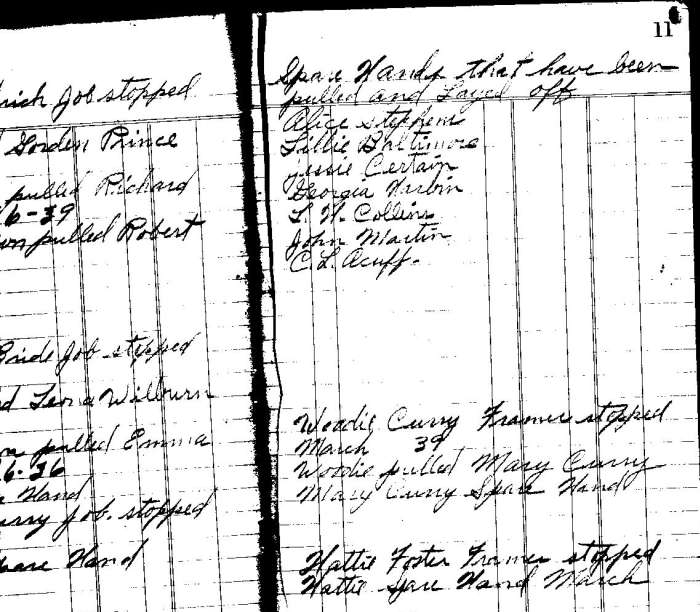 rich Job stopped
Gorden Prince
pulled Richard
6-39
pulled Robert
Job stopped
Leona Wilburn
pulled Emma
6-36
Hand
Curry Job. stopped
Spare Hand
11
Spare Hands that have been
pulled and Layed off
Alice Stephens
Lillie Baltimore
Jessie Certain
Georgia Harbin
L. W. Collins
John Martin
C. L. Acuff.
Woodie Curry Framer stopped
March 39
Woodie pulled Mary Curry
Mary Curry Spare Hand
Hattie Foster Framer stopped
Hattie Spare Hand March